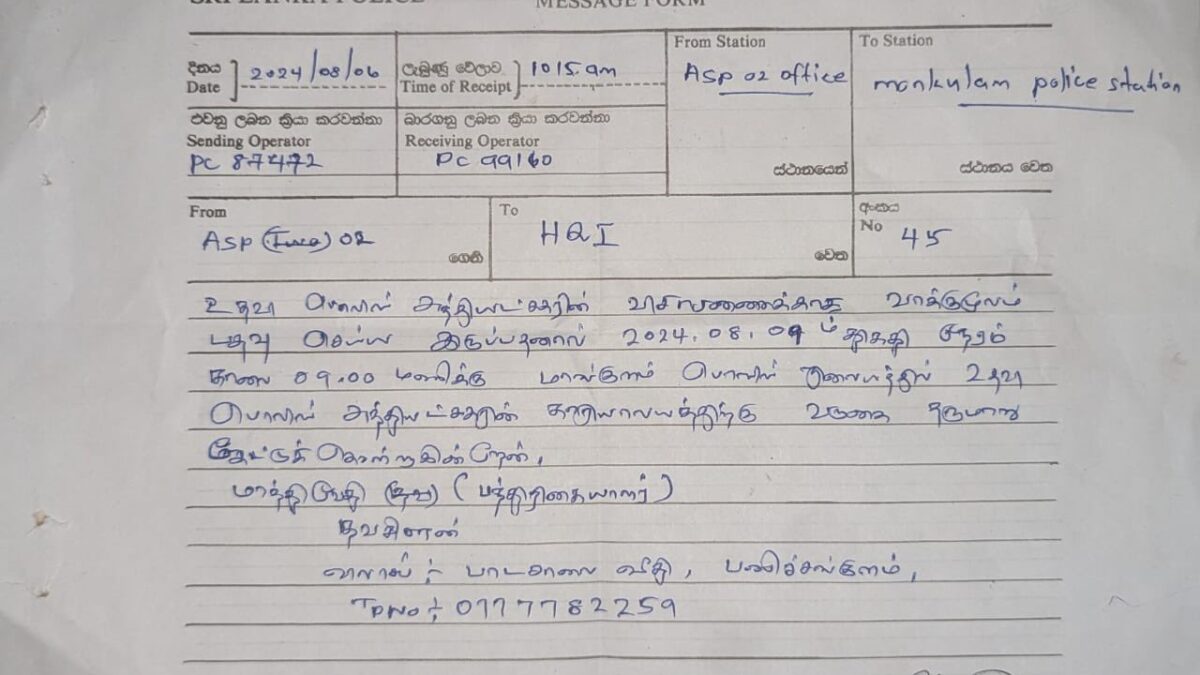 SRI LANKA POLICE MESSAGE FORM
දිනය
Date
2024/08/06
ලැබුණු වේලාව
Time of Receipt
1015.am
From Station
ASP 02 office
ස්ථානයෙන්
To Station
mankulam police station
ස්ථානය වෙත
එවනු ලබන ක්‍රියා කරවන්නා
Sending Operator
PC 87472
බාරගනු ලබන ක්‍රියා කරවන්නා
Receiving Operator
PC 99160
From
ASP 02
ගෙනි
To
HQI
වෙත
අංකය
No 45
உதவி பொலிஸ் அத்தியட்சகரின் விசாரணைக்காக வாக்குமூலம்
பதிவு செய்ய இருப்பதனால் 2024.08.09 ம் திகதி
காலை 09.00 மணிக்கு மாங்குளம் பொலிஸ் நிலையத்தில் உதவி
பொலிஸ் அத்தியட்சகரின் காரியாலயத்துற்கு வருகை தருமாறு
கேட்டுக் கொள்ளுகின்றேன்.
(பத்திரிகையாளர்)
தவசீலன்
பாடசாலை வீதி, பணிச்சங்குளம்,
TPNo:- 0777782259